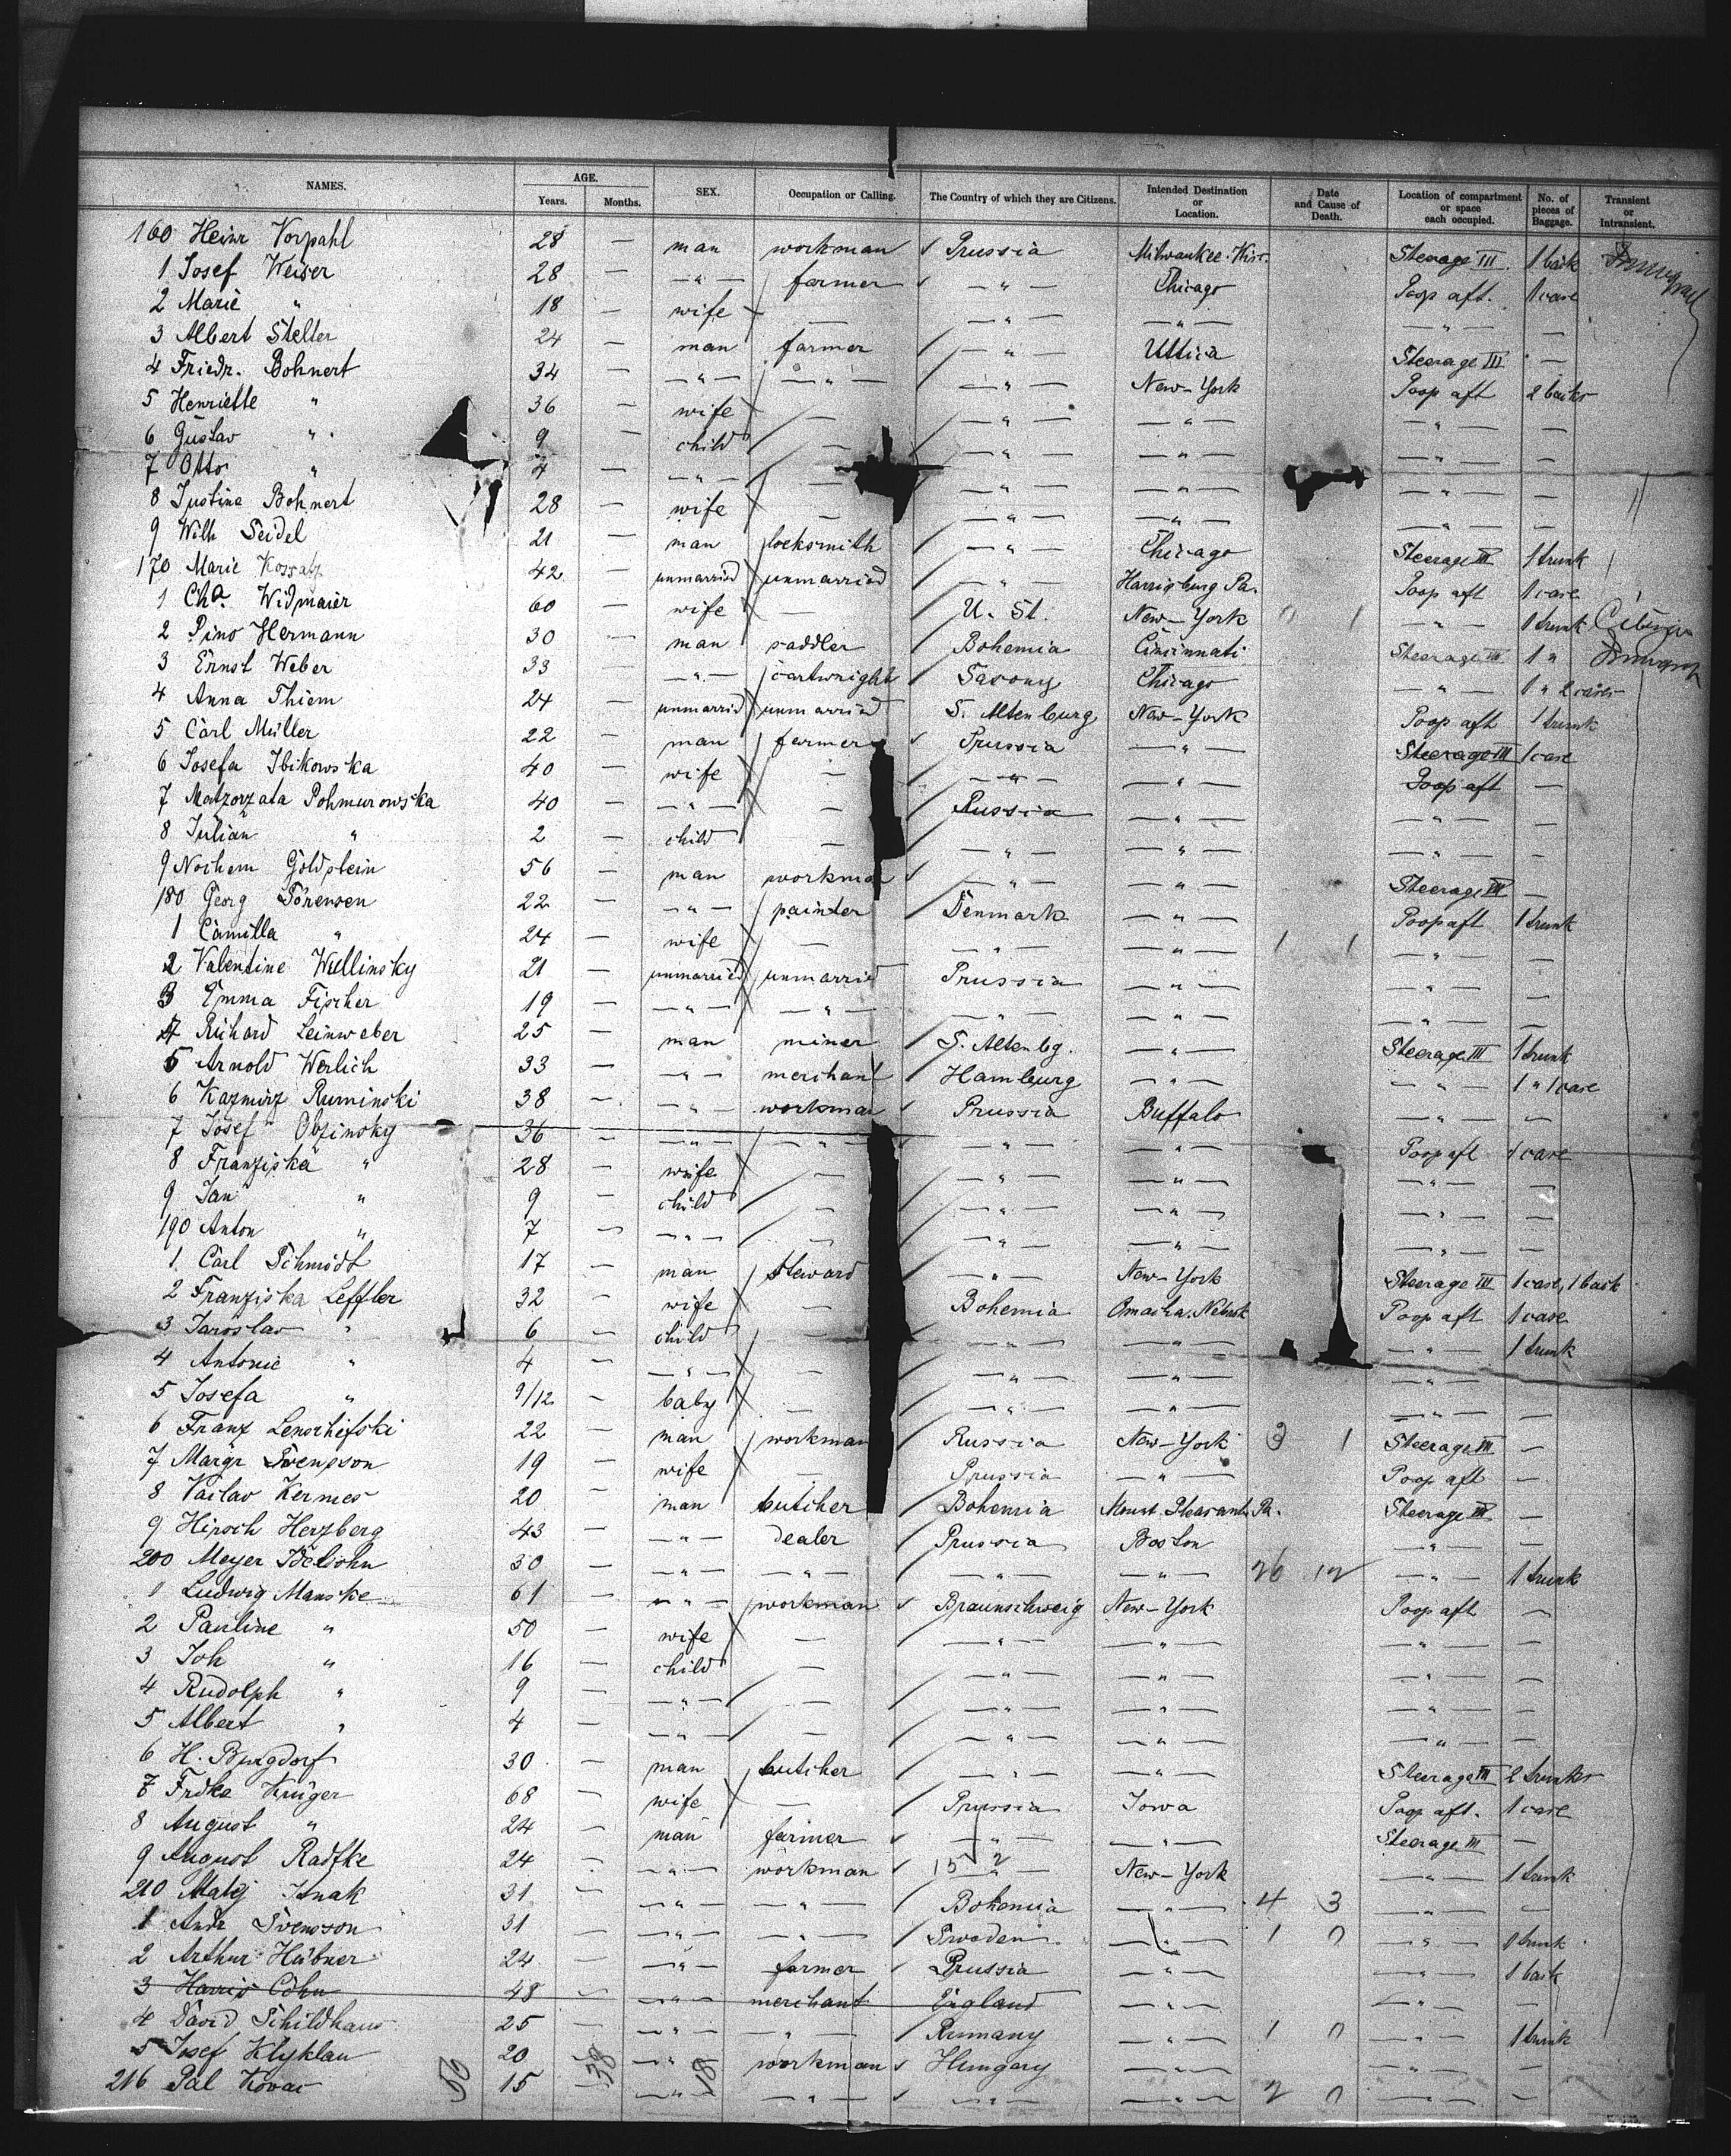 NAMES. AGE. Years. Months. SEX. Occupation or Calling. The Country of which they are Citizens. Intended Destination or Location. Date and Cause of Death. Location of compartment or space each occupied. No. of pieces of Baggage. Transient or Intransient.
160 Heinr Vorpahl 28 — man workman Prussia Milwaukee. Steerage III 1 bask
1 Josef Weiser 28 — —"— farmer —"— Chicago Poop aft. 1 case
2 Marie " 18 — wife — —"— —"— —"— —
3 Albert Stelter 24 — man farmer —"— Uttica Steerage III —
4 Friedr. Bohnert 34 — —"— —"— —"— New-York Poop aft 2 basks
5 Henriette " 36 — wife — —"— —"— —"— —
6 Gustav " 9 — child — —"— —"— —"— —
7 Otto " 4 — —"— — —"— —"— —"— —
8 Justine Bohnert 28 — wife — —"— —"— —"— —
9 Wilh Seidel 21 — man locksmith —"— Chicago Steerage III 1 trunk
170 Marie 42 — unmarried unmarried —"— Harrisburg Pa. Poop aft 1 case
1 Cha. Widmaier 60 — wife — U. St. New-York 0 1 —"— 1 trunk
2 Pino Hermann 30 — man saddler Bohemia Cincinnati Steerage III 1 "
3 Ernst Weber 33 — —"— cartwright Saxony Chicago —"— 1 " 2 cases
4 Anna Thiem 24 — unmarried unmarried S. Altenburg New-York Poop aft 1 trunk
5 Carl Müller 22 — man farmer Prussia —"— Steerage III 1 case
6 Josefa Ibikowska 40 — wife — —"— —"— Poop aft —
7 Malzorzata Pohmurowska 40 — —"— — Russia —"— —"— —
8 Julian " 2 — child — —"— —"— —"— —
9 Nochem Goldstein 56 — man workman —"— —"— Steerage III —
180 Georg Sörensen 22 — —"— painter Denmark —"— Poop aft 1 trunk
1 Camilla " 24 — wife — —"— —"— 1 1 —"— —
2 Valentine Wullinsky 21 — unmarried unmarried Prussia —"— —"— —
3 Emma Fischer 19 — —"— —"— —"— —"— —"— —
4 Richard Leinweber 25 — man miner S. Altenbg. —"— Steerage III 1 trunk
5 Arnold Werlich 33 — —"— merchant Hamburg —"— —"— 1 " 1 case
6 Kazmirz Ruminski 38 — —"— workman Prussia Buffalo —"— —
7 Josef Obzinsky 36 — —"— —"— —"— —"— Poop aft 1 case
8 Franziska " 28 — wife — —"— —"— —"— —
9 Jan " 9 — child — —"— —"— —"— —
190 Anton " 7 — —"— — —"— —"— —"— —
1 Carl Schmidt 17 — man steward —"— New-York Steerage III 1 case, 1 bask
2 Franziska Leffler 32 — wife — Bohemia Omaha. Nebrsk Poop aft 1 case
3 Jaroslav " 6 — child — —"— —"— —"— 1 trunk
4 Antonie " 4 — —"— — —"— —"— —"—
5 Josefa " 9/12 — baby — —"— —"— —"— —
6 Franz Lenschefski 22 — man workman Russia New-York 3 1 Steerage III —
7 Margr Svensson 19 — wife — Prussia —"— Poop aft —
8 Vaclav Kermes 20 man butcher Bohemia Mount Pleasant. Pa. Steerage III —
9 Hirsch Herzberg 43 — —"— dealer Prussia Boston —"— —
200 Meyer 30 — —"— —"— —"— —"— 26 12 —"— 1 trunk
1 Ludwig Manske 61 — —"— workman Braunschweig New-York Poop aft —
2 Pauline " 50 — wife — —"— —"— —"— —
3 Joh " 16 — child — —"— —"— —"— —
4 Rudolph " 9 — —"— — —"— —"— —"— —
5 Albert " 4 — —"— — —"— —"— —"— —
6 H. Burgdorf 30 — man butcher —"— —"— Steerage III 2 trunks
7 Frdke Krüger 68 — wife — Prussia Iowa Poop aft. 1 case
8 August " 24 — man farmer —"— —"— Steerage III —
9 August Radtke 24 — —"— workman 15 2 —"— New-York —"— 1 trunk
210 Matej 31 — —"— —"— Bohemia —"— 4 3 —"— —
1 Andr Svensson 31 — —"— —"— Sweden —"— 1 0 —"— 1 trunk
2 Arthur Hübner 24 — —"— farmer Prussia —"— —"— 1 bask
3 Harris Cohn 48 — —"— merchant England —"— —"— —
4 David Schildhaus 25 — —"— —"— Rumany —"— 1 0 —"— 1 trunk
5 Josef Klyklan 20 — —"— workman Hungary —"— —"— —
216 Pal Kovac 15 —"— —"— —"— —"— 2 0 —"— —
56 38 18